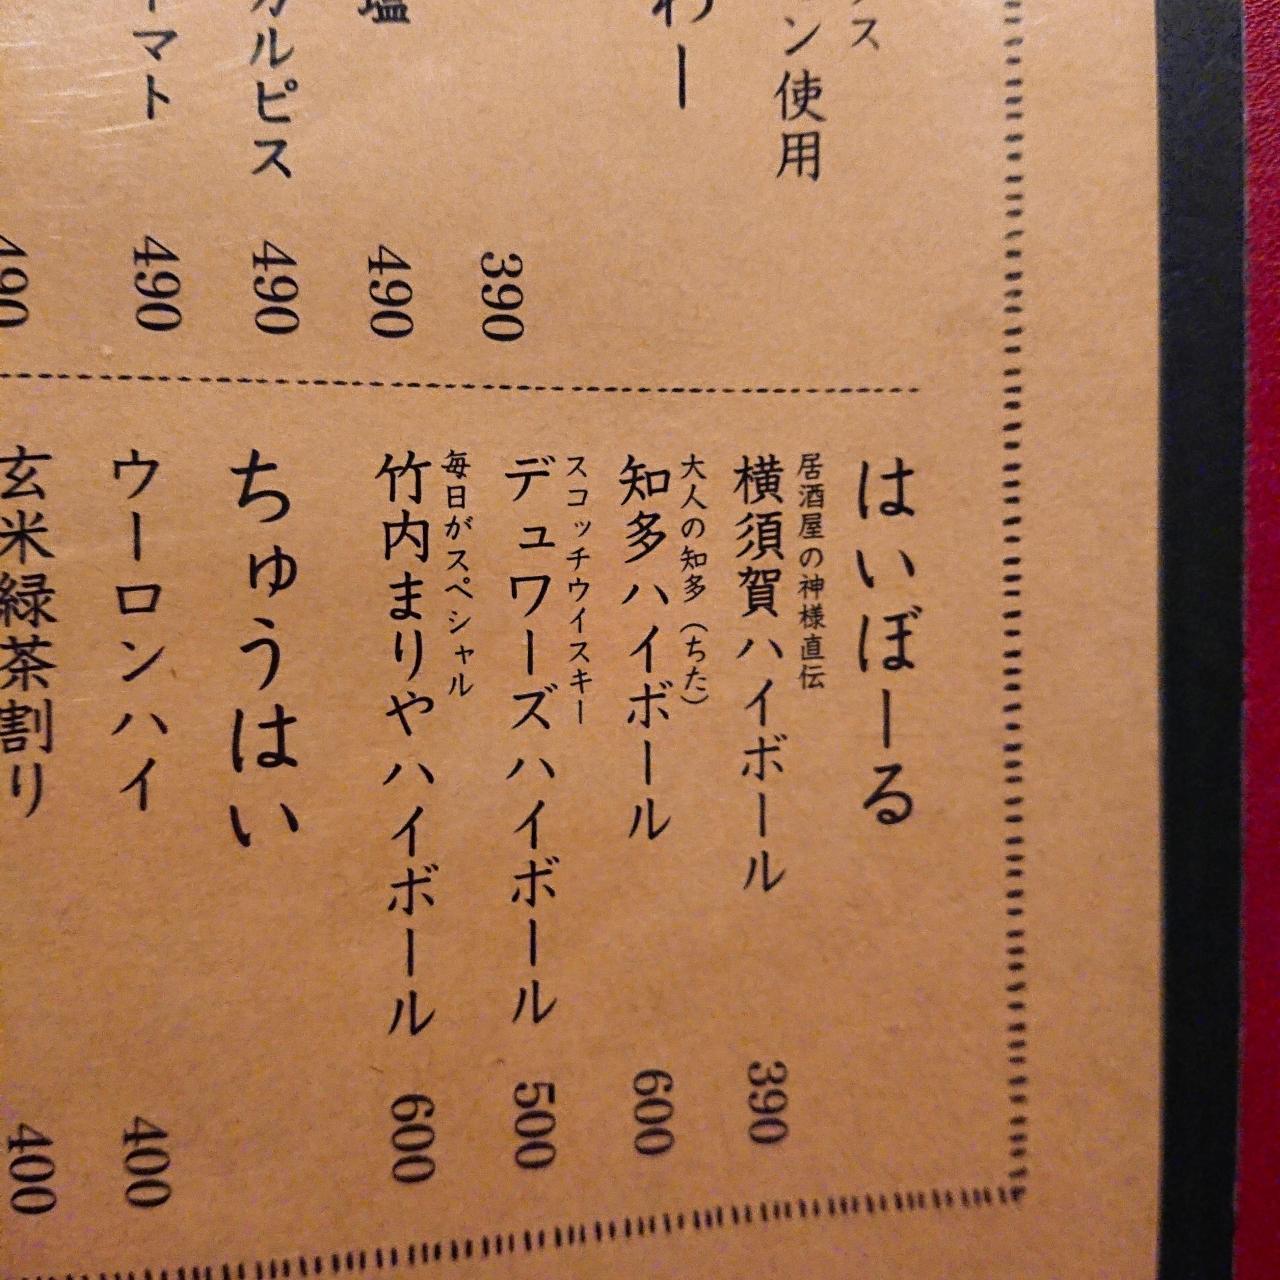 ン使用
わー
390
塩
490
カルピス
490
マト
490
490
はいぼーる
居酒屋の神様直伝
横須賀ハイボール 390
大人の知多（ちた）
知多ハイボール 600
スコッチウイスキー
デュワーズハイボール 500
毎日がスペシャル
竹内まりやハイボール 600
ちゅうはい
ウーロンハイ 400
玄米緑茶割り 400